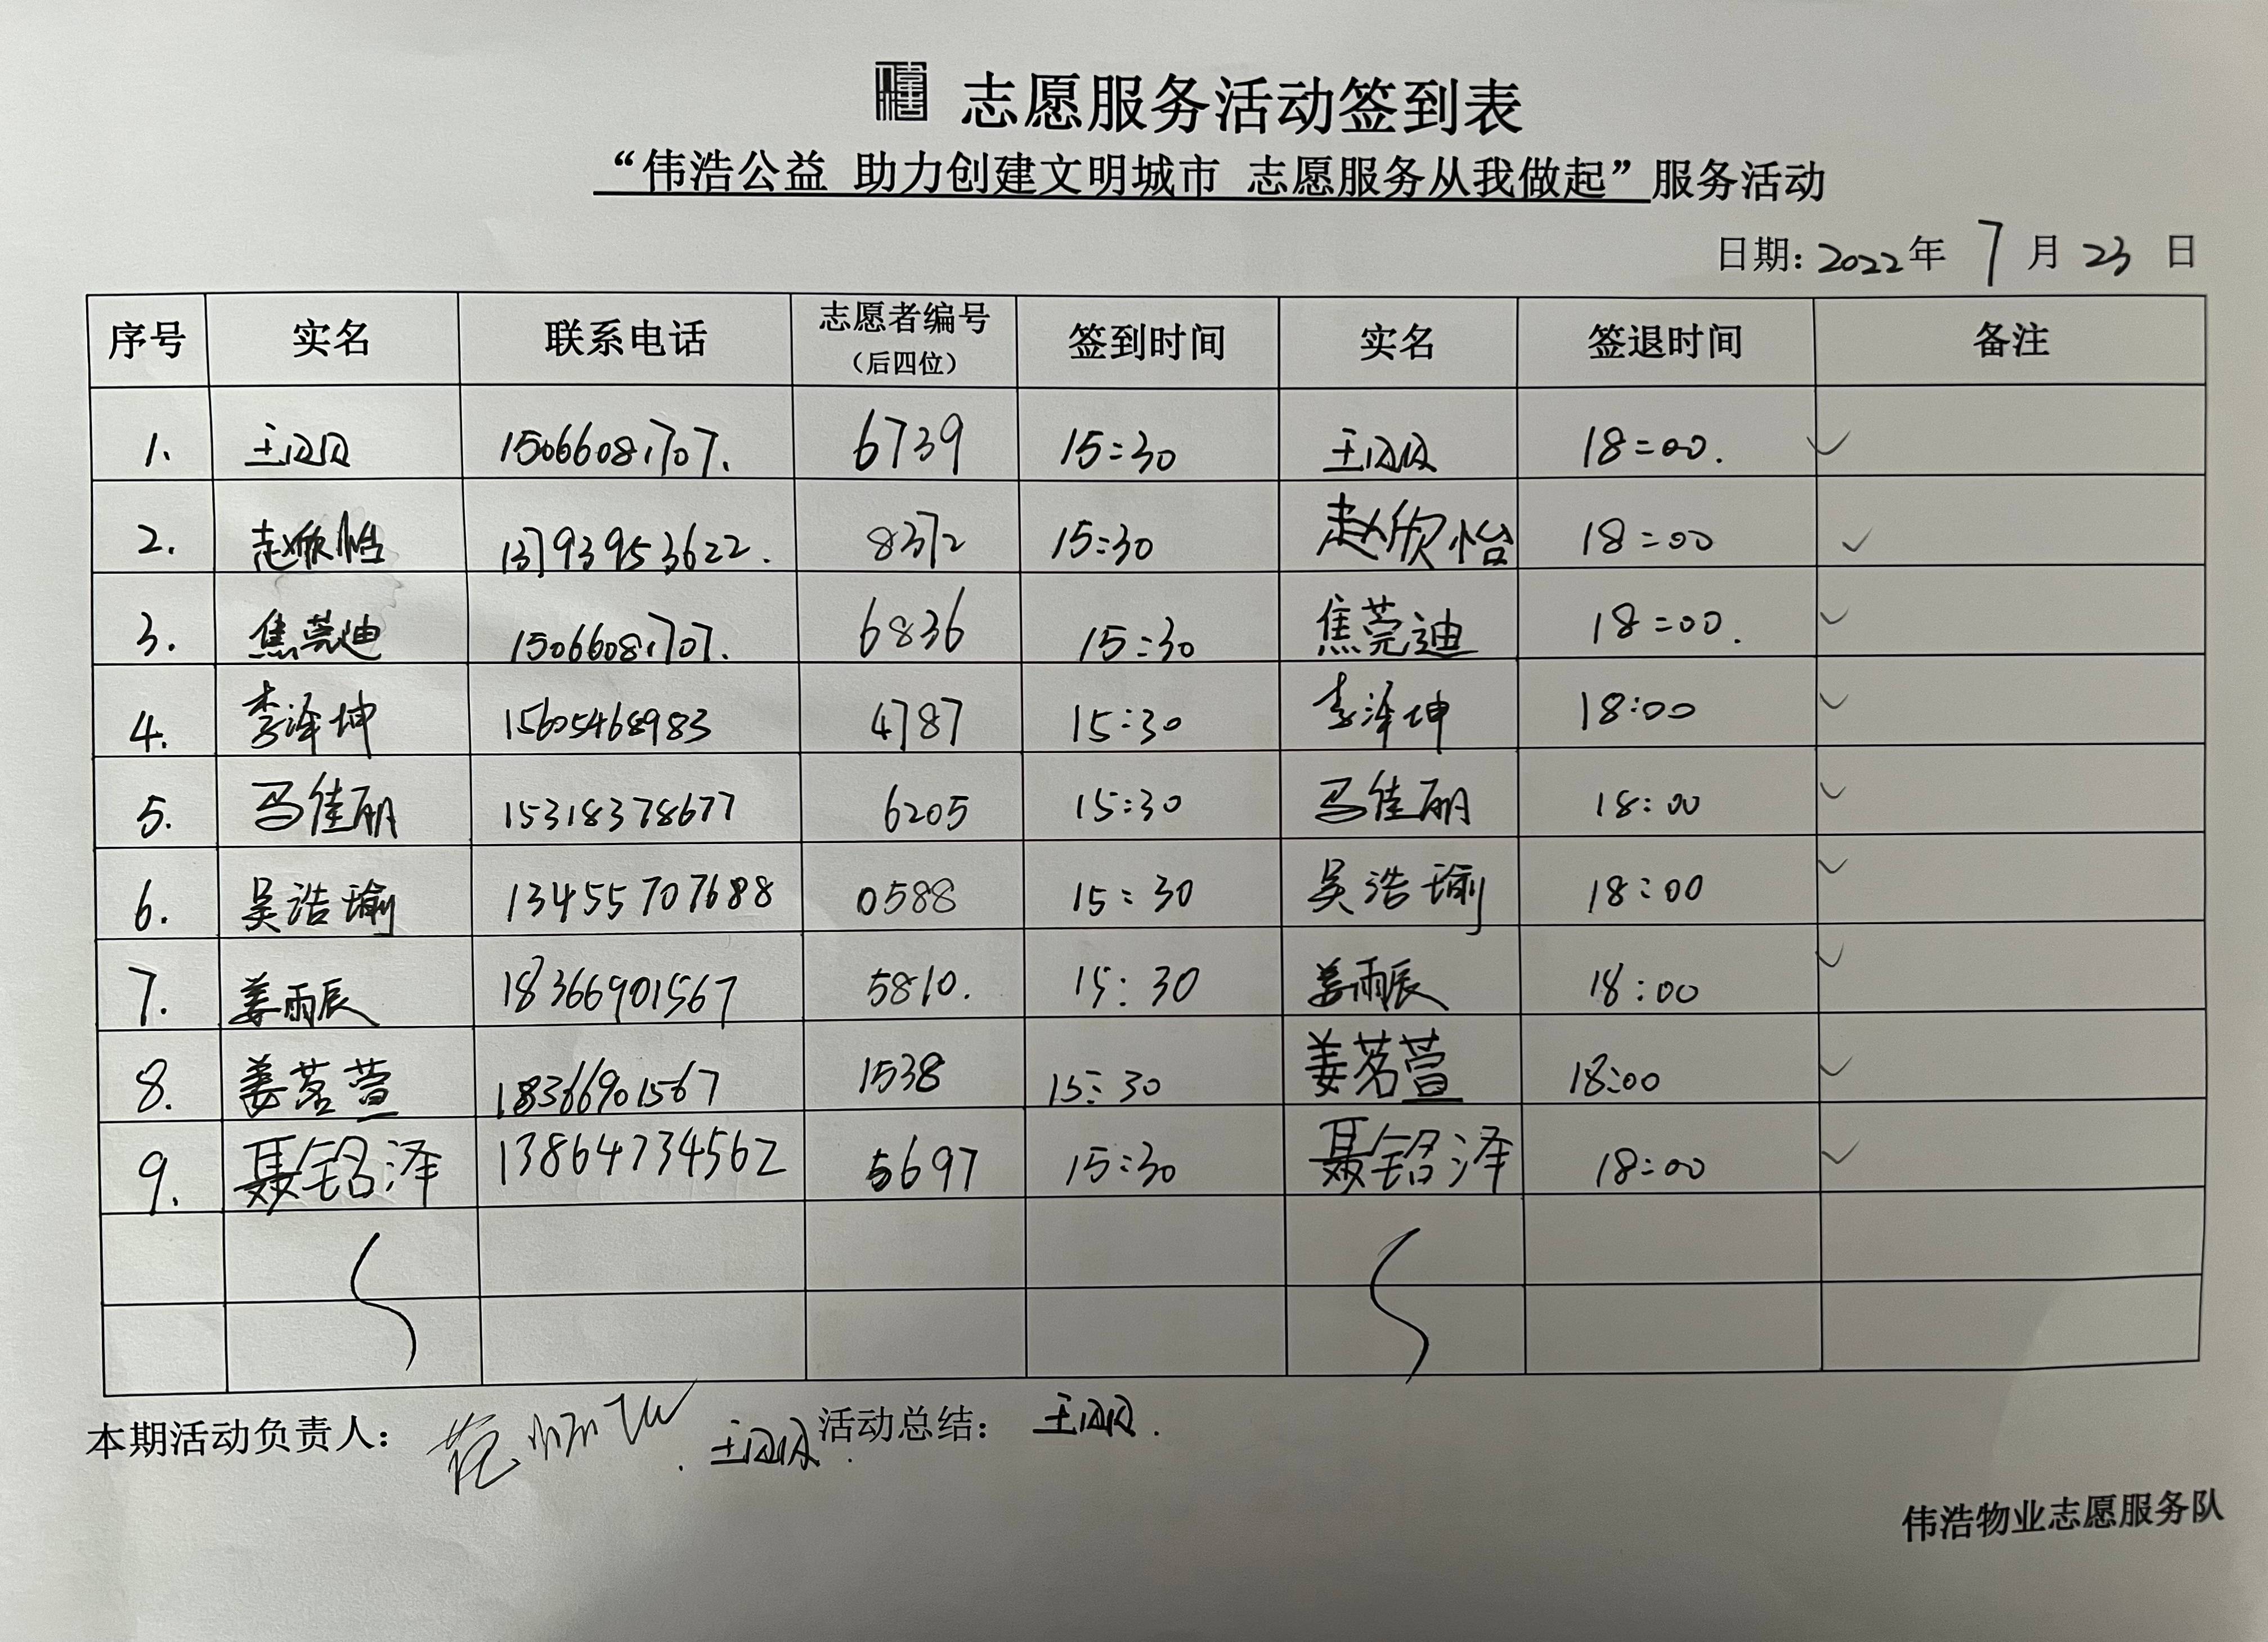 志愿服务活动签到表
“伟浩公益 助力创建文明城市 志愿服务从我做起”服务活动
日期：2022年 7月 23 日
序号 实名 联系电话 志愿者编号（后四位） 签到时间 实名 签退时间 备注
1. 王 15066081707. 6739 15:30 王 18:00. ✓
2. 赵欣怡 13793953622. 8372 15:30 赵欣怡 18:00 ✓
3. 焦莞迪 15066081707. 6836 15:30 焦莞迪 18:00. ✓
4. 李泽坤 15605468983 4787 15:30 李泽坤 18:00 ✓
5. 马佳丽 15318378677 6205 15:30 马佳丽 18:00 ✓
6. 吴浩瑜 13455707688 0588 15:30 吴浩瑜 18:00 ✓
7. 姜雨辰 18366901567 5810. 15:30 姜雨辰 18:00 ✓
8. 姜茗萱 18366901567 1538 15:30 姜茗萱 18:00 ✓
9. 聂铭泽 13864734562 5697 15:30 聂铭泽 18:00 ✓
本期活动负责人： 王 活动总结： 王
伟浩物业志愿服务队